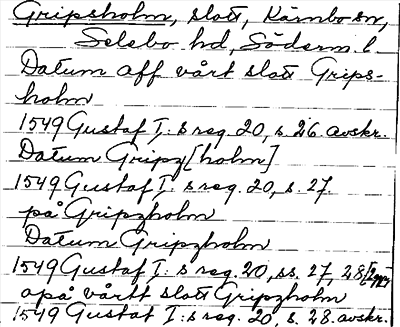 Gripsholm, slott, Kärnbo sn,
Selebo hd, Söderm. l.
Datum aff vårt slott Grips-
holm
1549 Gustaf I: s reg. 20, s. 26. avskr.
Datum Gripz[holm]
1549 Gustaf I: s reg. 20, s. 27.
på Gripzholm
Datum Gripzholm
1549 Gustaf I: s reg. 20, ss. 27, 28 [2 ggr]
opå vårtt slott Gripzholm
1549 Gustaf I: s reg. 20, s. 28. avskr.